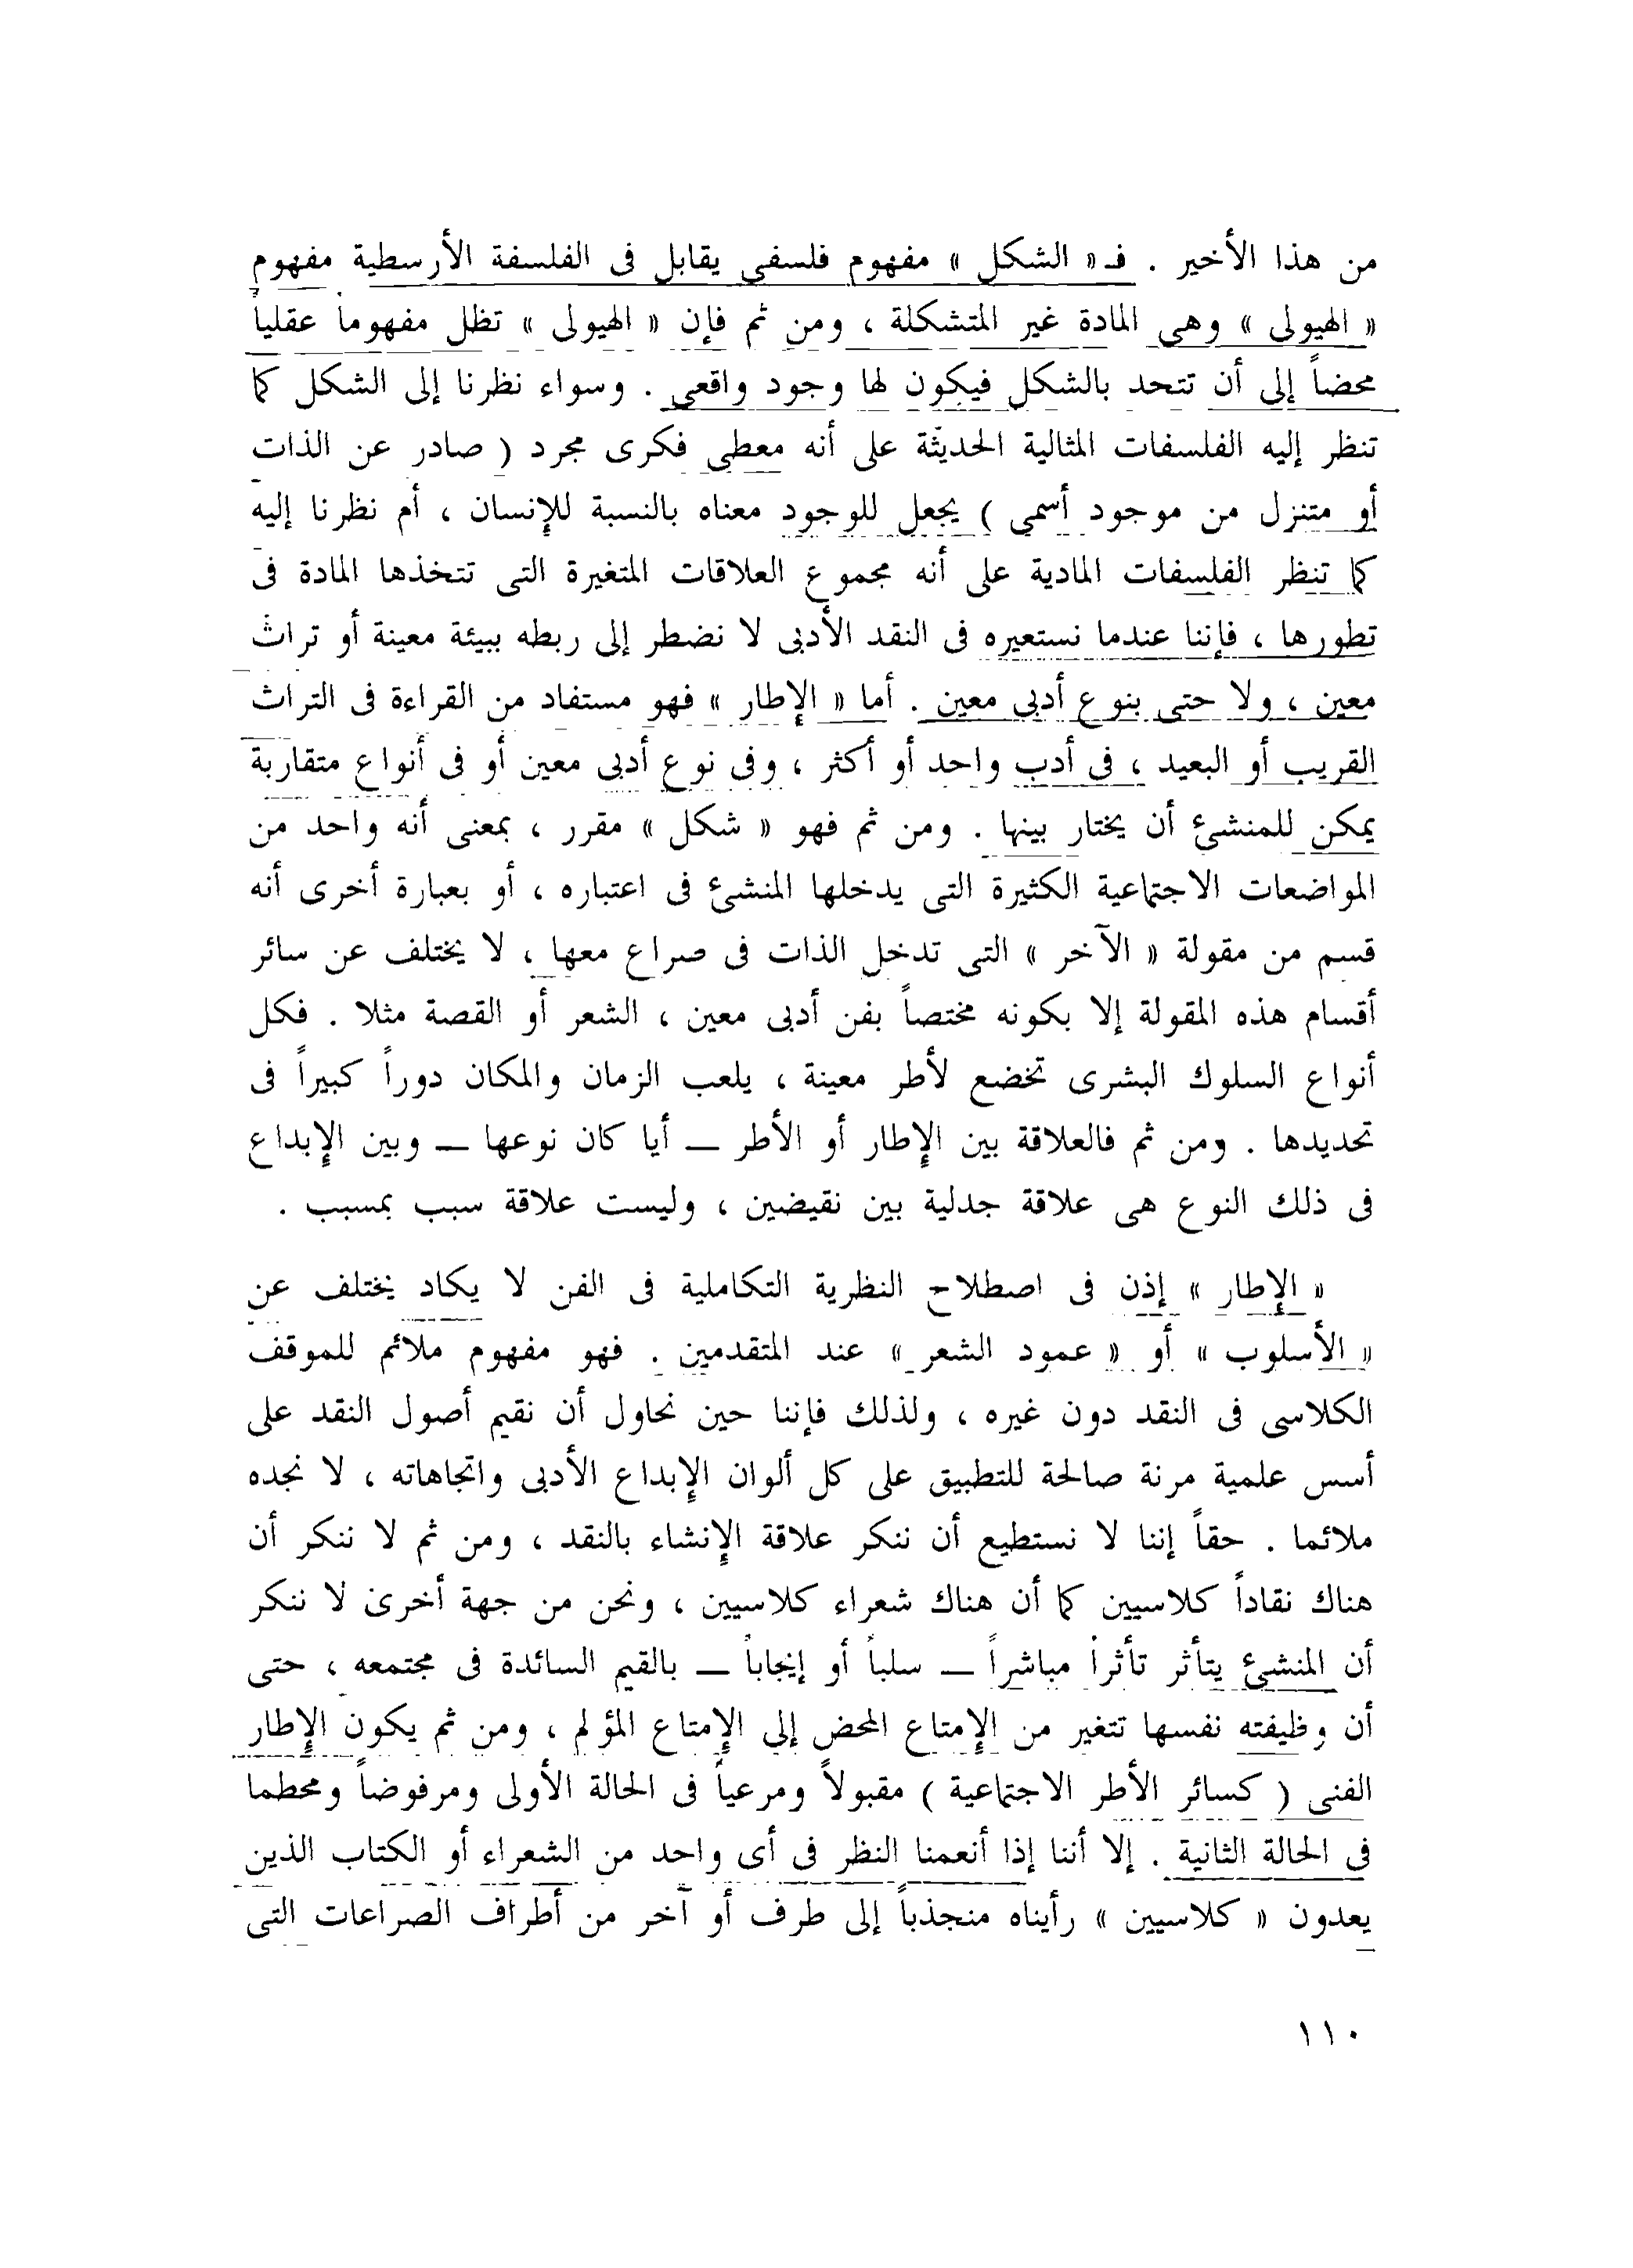 من هذا الأخير . فـ « الشكل » مفهوم فلسفى يقابل فى الفلسفة الأرسطية مفهوم
« الهيولى » وهى المادة غير المتشكلة ، ومن ثم فإن « الهيولى » تظل مفهوماً عقلياً
محضاً إلى أن تتحد بالشكل فيكون لها وجود واقعى . وسواء نظرنا إلى الشكل كما
تنظر إليه الفلسفات المثالية الحديثة على أنه معطى فكرى مجرد ( صادر عن الذات
أو متنزل من موجود أسمى ) يجعل للوجود معناه بالنسبة للإنسان ، أم نظرنا إليه
كما تنظر الفلسفات المادية على أنه مجموع العلاقات المتغيرة التى تتخذها المادة فى
تطورها ، فإننا عندما نستعيره فى النقد الأدبى لا نضطر إلى ربطه ببيئة معينة أو تراث
معين ، ولا حتى بنوع أدبى معين . أما « الإطار » فهو مستفاد من القراءة فى التراث
القريب أو البعيد ، فى أدب واحد أو أكثر ، وفى نوع أدبى معين أو فى أنواع متقاربة
يمكن للمنشئ أن يختار بينها . ومن ثم فهو « شكل » مقرر ، بمعنى أنه واحد من
المواضعات الاجتماعية الكثيرة التى يدخلها المنشئ فى اعتباره ، أو بعبارة أخرى أنه
قسم من مقولة « الآخر » التى تدخل الذات فى صراع معها ، لا يختلف عن سائر
أقسام هذه المقولة إلا بكونه مختصاً بفن أدبى معين ، الشعر أو القصة مثلا . فكل
أنواع السلوك البشرى تخضع لأطر معينة ، يلعب الزمان والمكان دوراً كبيراً فى
تحديدها . ومن ثم فالعلاقة بين الإطار أو الأطر ــ أيا كان نوعها ــ وبين الإبداع
فى ذلك النوع هى علاقة جدلية بين نقيضين ، وليست علاقة سبب بمسبب .
« الإطار » إذن فى اصطلاح النظرية التكاملية فى الفن لا يكاد يختلف عن
« الأسلوب » أو « عمود الشعر » عند المتقدمين . فهو مفهوم ملائم للموقف
الكلاسى فى النقد دون غيره ، ولذلك فإننا حين نحاول أن نقيم أصول النقد على
أسس علمية مرنة صالحة للتطبيق على كل ألوان الإبداع الأدبى واتجاهاته ، لا نجده
ملائما . حقاً إننا لا نستطيع أن ننكر علاقة الإنشاء بالنقد ، ومن ثم لا ننكر أن
هناك نقاداً كلاسيين كما أن هناك شعراء كلاسيين ، ونحن من جهة أخرى لا ننكر
أن المنشئ يتأثر تأثراً مباشراً ــ سلباً أو إيجاباً ــ بالقيم السائدة فى مجتمعه ، حتى
أن وظيفته نفسها تتغير من الإمتاع المحض إلى الإمتاع المؤلم ، ومن ثم يكون الإطار
الفنى ( كسائر الأطر الاجتماعية ) مقبولاً ومرعياً فى الحالة الأولى ومرفوضاً ومحطما
فى الحالة الثانية . إلا أننا إذا أنعمنا النظر فى أى واحد من الشعراء أو الكتاب الذين
يعدون « كلاسيين » رأيناه منجذباً إلى طرف أو آخر من أطراف الصراعات التى
١١٠